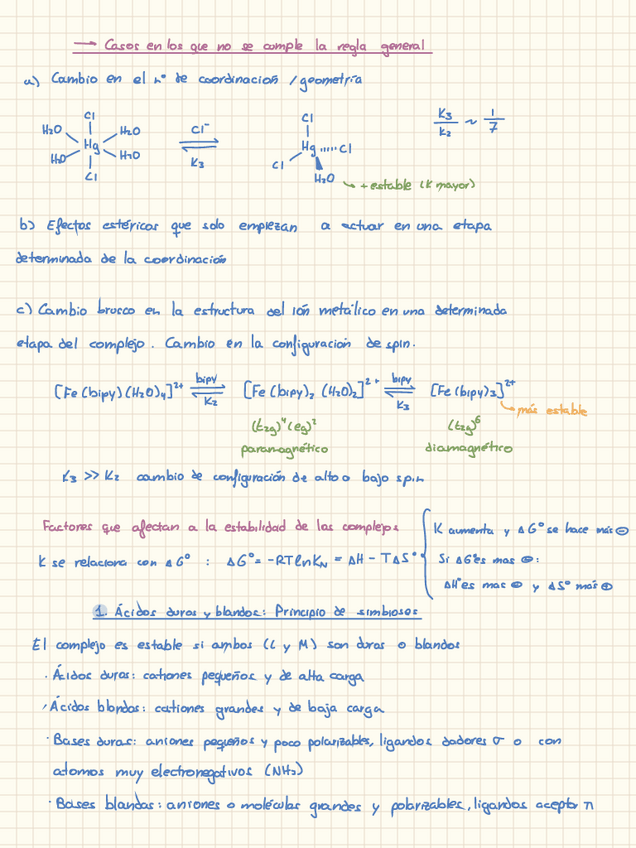 → Casos en los que no se cumple la regla general
a) Cambio en el nº de coordinación / geometría
Cl Cl⁻ Cl K₃/K₂ ~ 1/7
H₂O H₂O
Hg Hg Cl
H₂O H₂O K₃ Cl
Cl H₂O
→ + estable (K mayor)
b) Efectos estéricos que solo empiezan a actuar en una etapa
determinada de la coordinación
c) Cambio brusco en la estructura del ión metálico en una determinada
etapa del complejo. Cambio en la configuración de spin.
[Fe(bipy)(H₂O)₄]²⁺ ⇌ bipy K₂ [Fe(bipy)₂(H₂O)₂]²⁺ ⇌ bipy K₃ [Fe(bipy)₃]²⁺
→ más estable
(t₂g)⁴(eg)² (t₂g)⁶
paramagnético diamagnético
K₃ >> K₂ cambio de configuración de alto a bajo spin
Factores que afectan a la estabilidad de los complejos
K aumenta y ΔG° se hace más ⊖
K se relaciona con ΔG° : ΔG° = -RTlnKₙ = ΔH - TΔS°
Si ΔG° es mas ⊖:
ΔH° es mas ⊖ y ΔS° más ⊕
1. Ácidos duros y blandos: Principio de simbiosis
El complejo es estable si ambos (L y M) son duros o blandos
· Ácidos duros: cationes pequeños y de alta carga
· Ácidos blandos: cationes grandes y de baja carga
· Bases duras: aniones pequeños y poco polarizables, ligandos dadores σ o con
atomos muy electronegativos (NH₃)
· Bases blandas: aniones o moléculas grandes y polarizables, ligandos aceptor π